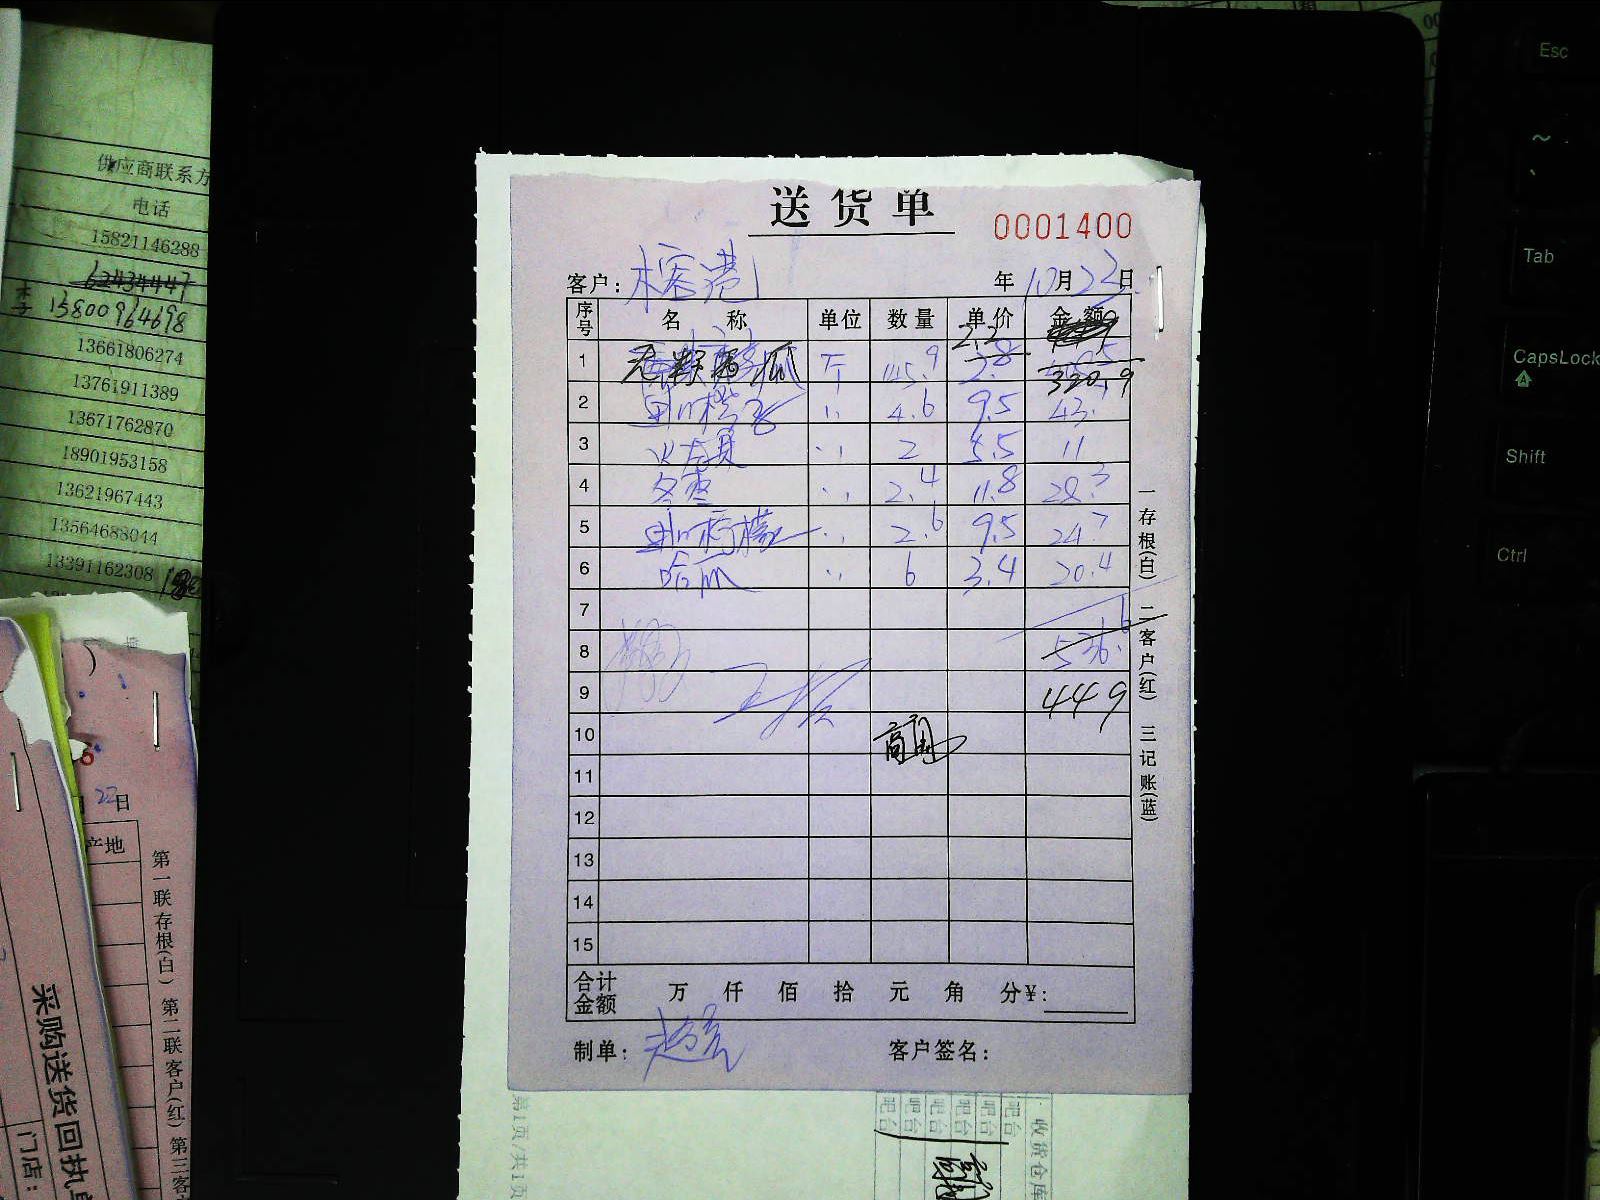 供应商联系方
电话
15821146288
62434447
李 15800964698
13661806274
13761911389
13671762870
18901953158
13621967443
13564688044
13391162308
送货单
0001400
客户：
年 10月23日
序号 名称 单位 数量 单价 金额
2.2
1 无籽西瓜 斤 145.9 2.8
320.9
2 4.6 9.5 43.7
3 火龙果 2 5.5 11
4 冬枣 2.4 11.8 28.3
5 2.6 9.5 24.7
6 哈瓜 6 3.4 20.4
7
8 536.6
9 449
10
11
12
13
14
15
合计金额 万 仟 佰 拾 元 角 分¥：
制单：
客户签名：
一存根(白) 二客户(红) 三记账(蓝)
22日
产地
第一联存根(白) 第二联客户(红) 第三客
采购送货回执单
门店：
第1页/共1页
收货仓库
吧台
吧台
吧台
吧台
吧台
吧台
Esc
~
Tab
CapsLock
A
Shift
Ctrl